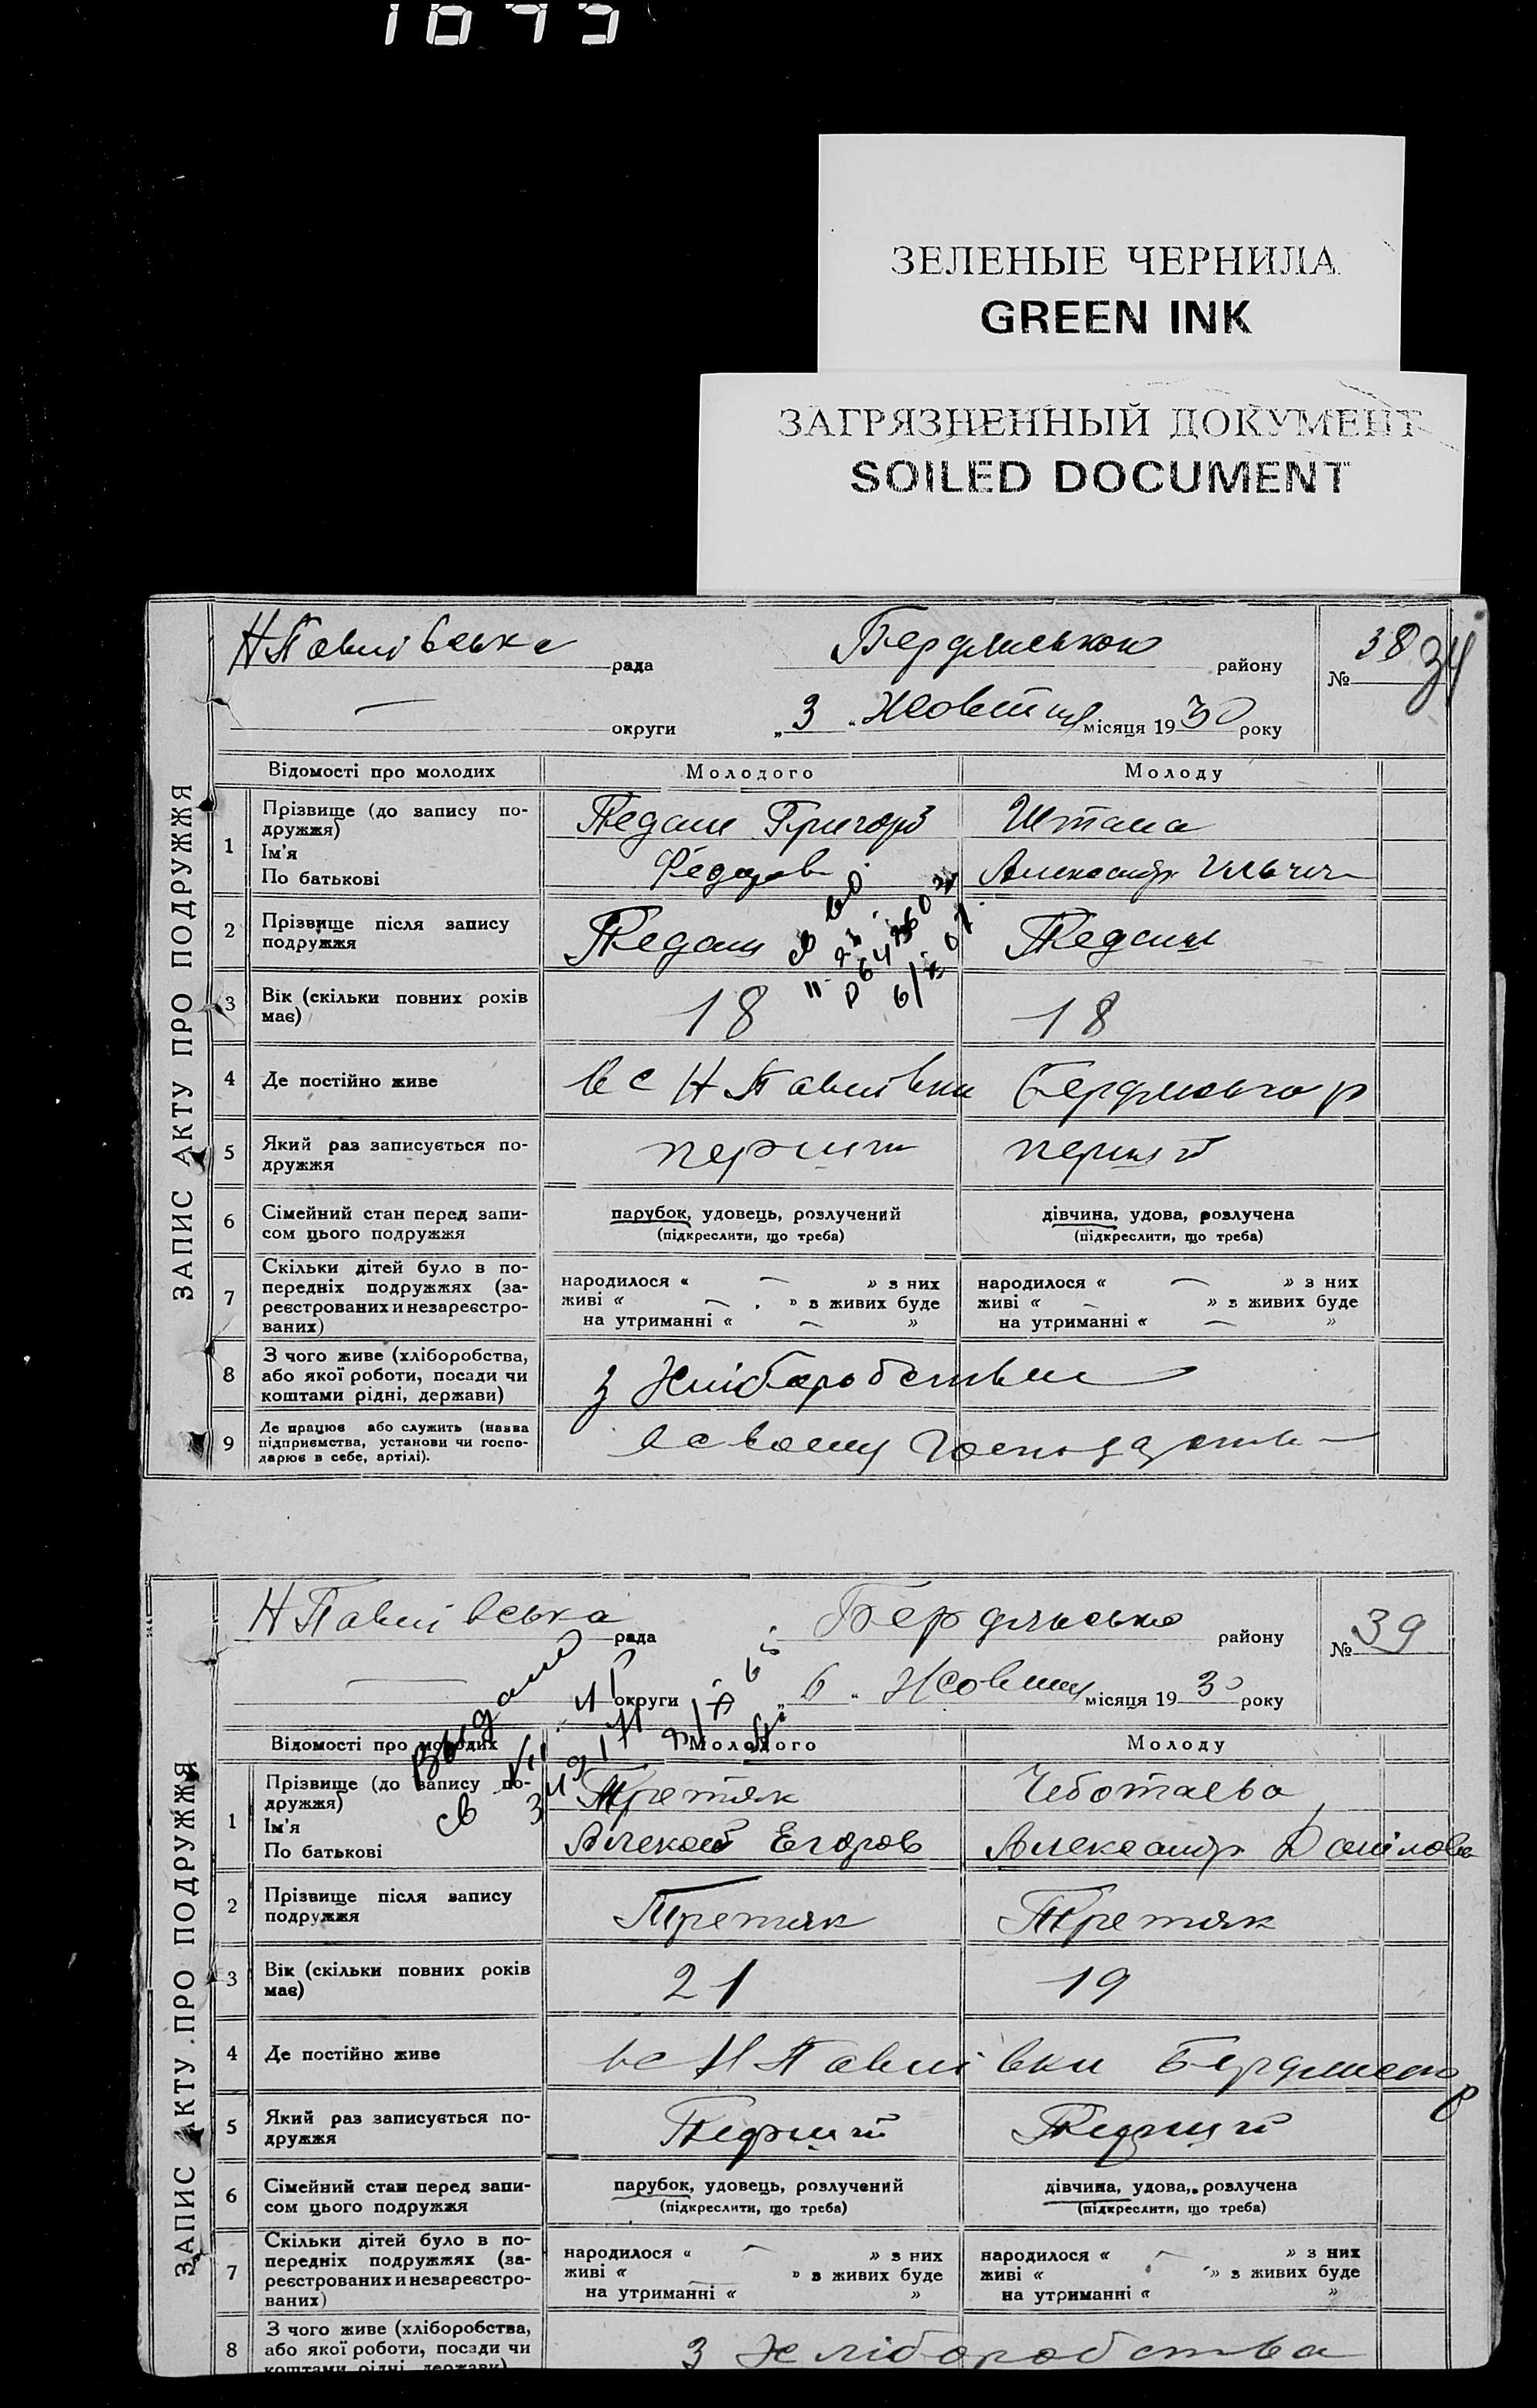 ЗЕЛЕНЫЕ ЧЕРНИЛА
GREEN INK
ЗАГРЯЗНЕННЫЙ ДОКУМЕНТ
SOILED DOCUMENT
ЗАПИС АКТУ ПРО ПОДРУЖЖЯ
Н Павлівська рада Бердянського району № 38 34
— округи „ 3 “ Жовтня місяця 1930 року
Відомості про молодих Молодого Молоду
1 Прізвище (до запису подружжя) Ім'я По батькові
Педаш Григорій
Федоров
Штана
Александр
2 Прізвище після запису подружжя Педаш Педаш
3 Вік (скільки повних років має) 18 18
4 Де постійно живе в с Н Павлівки Бердянського р
5 Який раз записується подружжя перший перший
6 Сімейний стан перед записом цього подружжя
парубок, удовець, розлучений
(підкреслити, що треба)
дівчина, удова, розлучена
(підкреслити, що треба)
7 Скільки дітей було в попередніх подружжях (зареєстрованих и незареєстрованих)
народилося « — » з них
живі « — » з живих буде
на утриманні « — »
народилося « — » з них
живі « — » з живих буде
на утриманні « — »
8 З чого живе (хліборобства, або якої роботи, посади чи коштами рідні, держави) з Хліборобства
9 Де працює або служить (назва підприємства, установи чи господарює в себе, артілі). в своєму
ЗАПИС АКТУ ПРО ПОДРУЖЖЯ
Н Павлівська рада Бердянсько району № 39
— округи „ 6 “ Жовтня місяця 1930 року
Выдано
Відомості про молодих Молодого Молоду
1 Прізвище (до запису подружжя) Ім'я По батькові
Третяк
Алексей Егоров
Чеботаева
Александр Данілова
2 Прізвище після запису подружжя Третяк Третяк
3 Вік (скільки повних років має) 21 19
4 Де постійно живе в с Н Павлівки Бердянського р
5 Який раз записується подружжя Перший Перший
6 Сімейний стан перед записом цього подружжя
парубок, удовець, розлучений
(підкреслити, що треба)
дівчина, удова, розлучена
(підкреслити, що треба)
7 Скільки дітей було в попередніх подружжях (зареєстрованих и незареєстрованих)
народилося « — » з них
живі « » з живих буде
на утриманні « — »
народилося « — » з них
живі « » з живих буде
на утриманні « »
8 З чого живе (хліборобства, або якої роботи, посади чи коштами рідні, держави) З Хліборобства